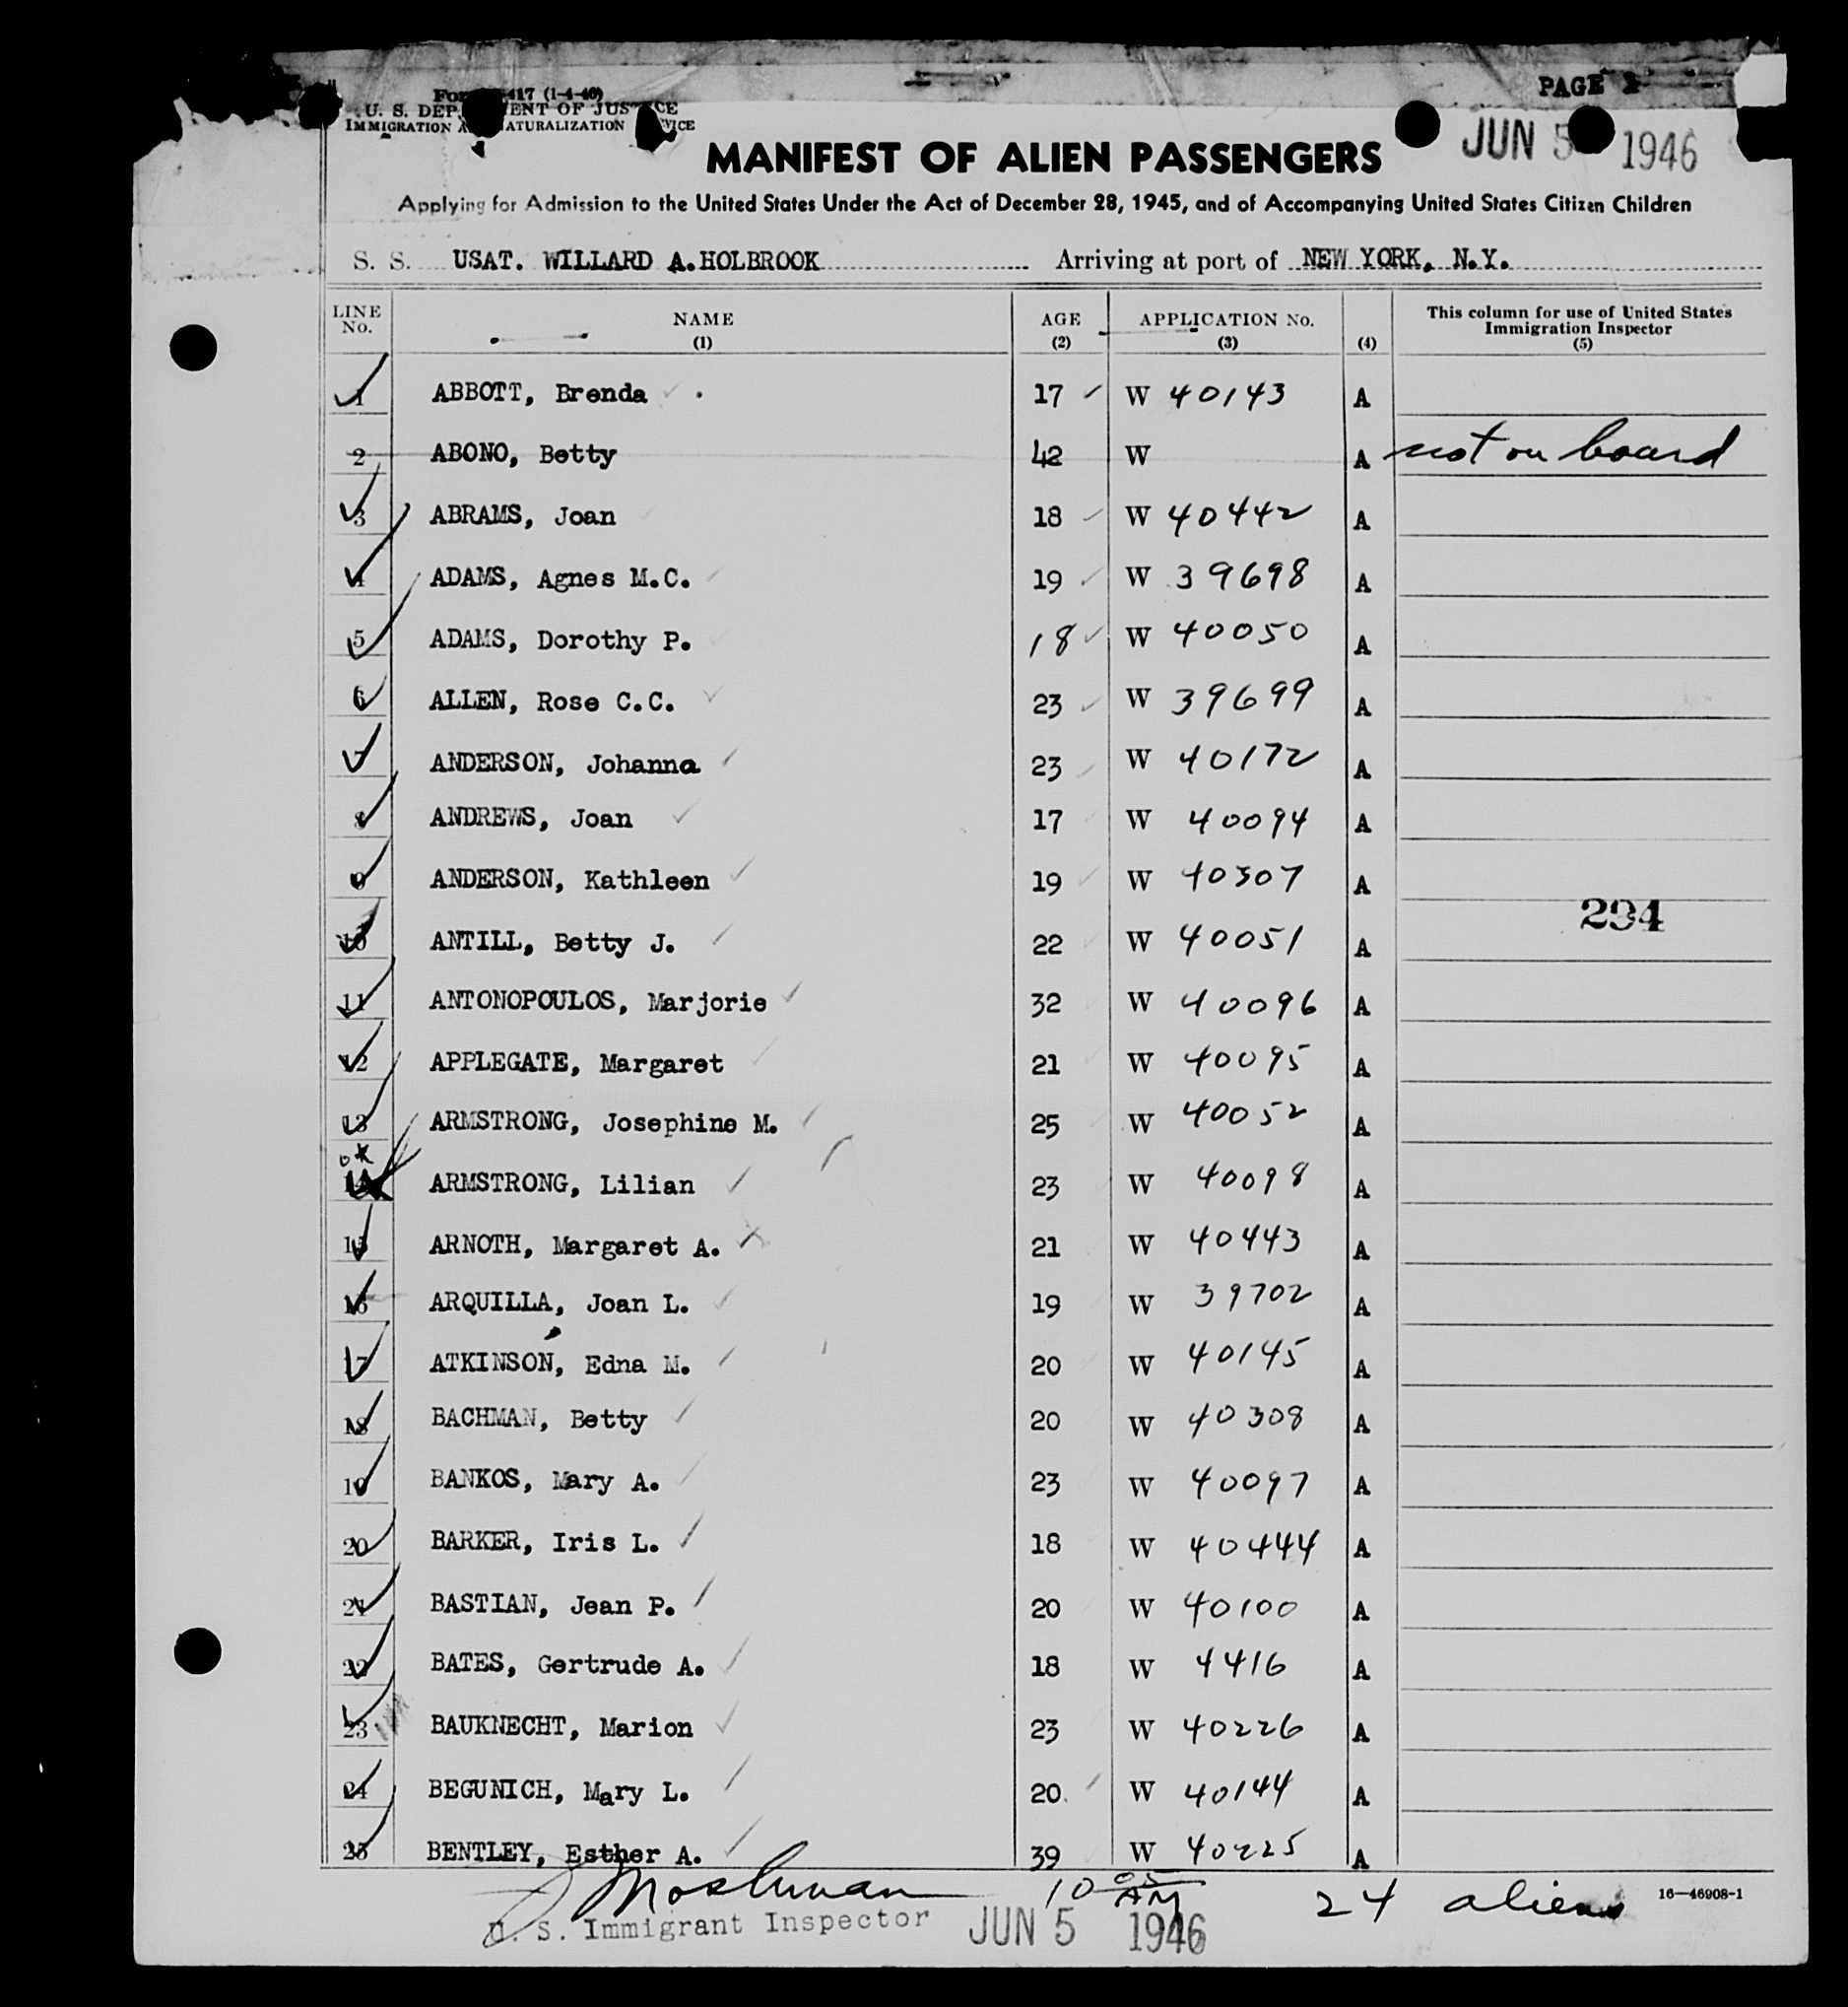 PAGE
417 (1-4-46)
U. S. DEP ENT OF JUS CE
IMMIGRATION A ATURALIZATION VICE
JUN 5 1946
MANIFEST OF ALIEN PASSENGERS
Applying for Admission to the United States Under the Act of December 28, 1945, and of Accompanying United States Citizen Children
S. S. USAT. WILLARD A.HOLBROOK Arriving at port of NEW YORK, N.Y.
LINE No. NAME (1) AGE (2) APPLICATION No. (3) (4) This column for use of United States Immigration Inspector (5)
1 ABBOTT, Brenda 17 W 40143 A
2 ABONO, Betty 42 W A not on board
3 ABRAMS, Joan 18 W 40442 A
4 ADAMS, Agnes M.C. 19 W 39698 A
5 ADAMS, Dorothy P. 18 W 40050 A
6 ALLEN, Rose C.C. 23 W 39699 A
7 ANDERSON, Johanna 23 W 40172 A
8 ANDREWS, Joan 17 W 40094 A
9 ANDERSON, Kathleen 19 W 40307 A
294
10 ANTILL, Betty J. 22 W 40051 A
11 ANTONOPOULOS, Marjorie 32 W 40096 A
12 APPLEGATE, Margaret 21 W 40095 A
13 ARMSTRONG, Josephine M. 25 W 40052 A
ok
14 ARMSTRONG, Lilian 23 W 40098 A
15 ARNOTH, Margaret A. 21 W 40443 A
16 ARQUILLA, Joan L. 19 W 39702 A
17 ATKINSON, Edna M. 20 W 40145 A
18 BACHMAN, Betty 20 W 40308 A
19 BANKOS, Mary A. 23 W 40097 A
20 BARKER, Iris L. 18 W 40444 A
21 BASTIAN, Jean P. 20 W 40100 A
22 BATES, Gertrude A. 18 W 4416 A
23 BAUKNECHT, Marion 23 W 40226 A
24 BEGUNICH, Mary L. 20. W 40144 A
25 BENTLEY, Esther A. 39 W 40225 A
10 05 AM 24 aliens 16—46908-1
U. S. Immigrant Inspector JUN 5 1946